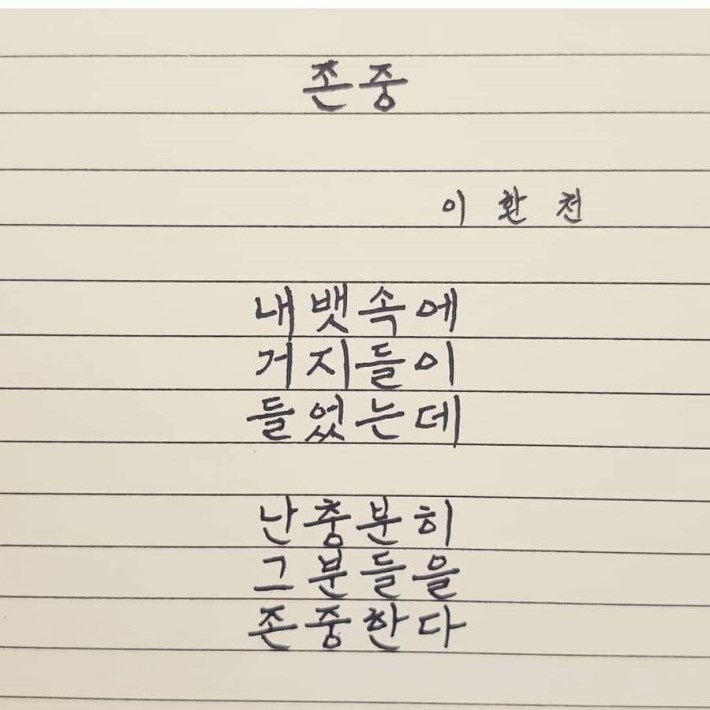 존중
이환천
내뱃속에
거지들이
들었는데
난충분히
그분들을
존중한다